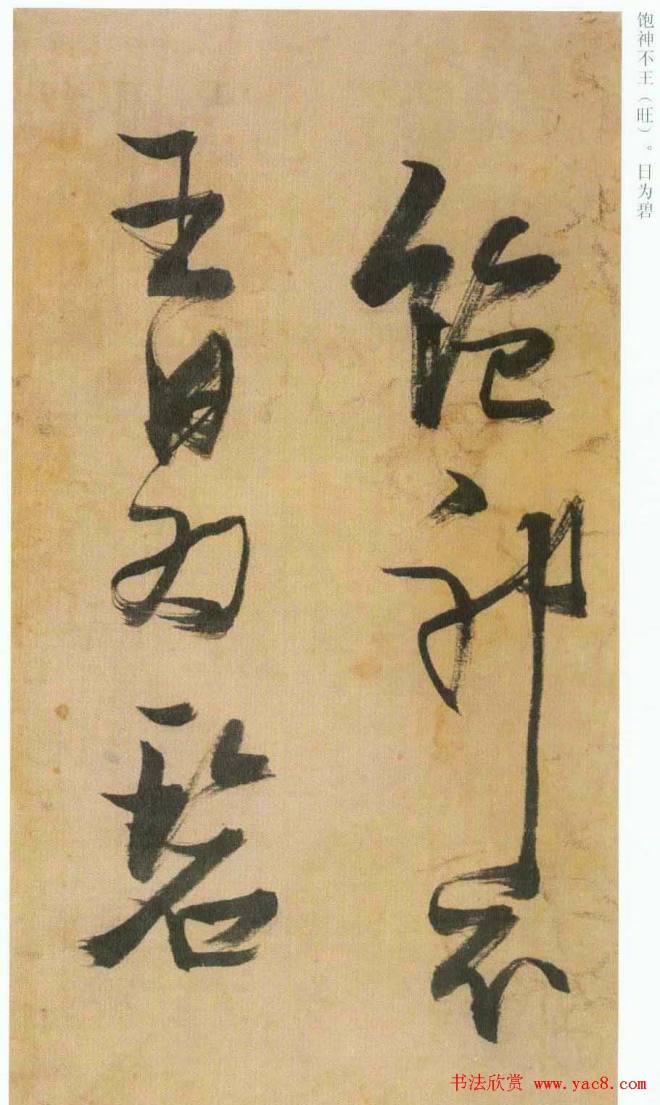 饱神不
王日为碧
饱神不王（旺）。日为碧
书法欣赏 www.yac8.com